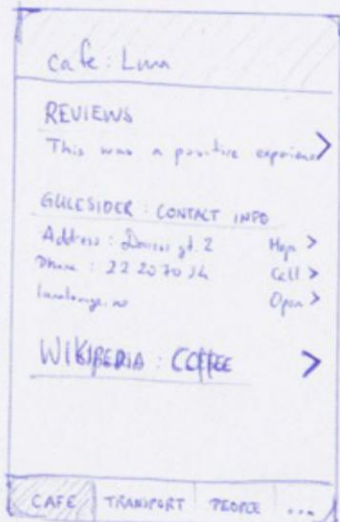 cafe: Luna
REVIEWS
This was a positive experience >
GULESIDER: CONTACT INFO
Address: gt. 2 Map >
Phone: 22 20 70 34 Call >
Open >
WIKIPEDIA: COFFEE >
CAFE TRANSPORT PEOPLE ...